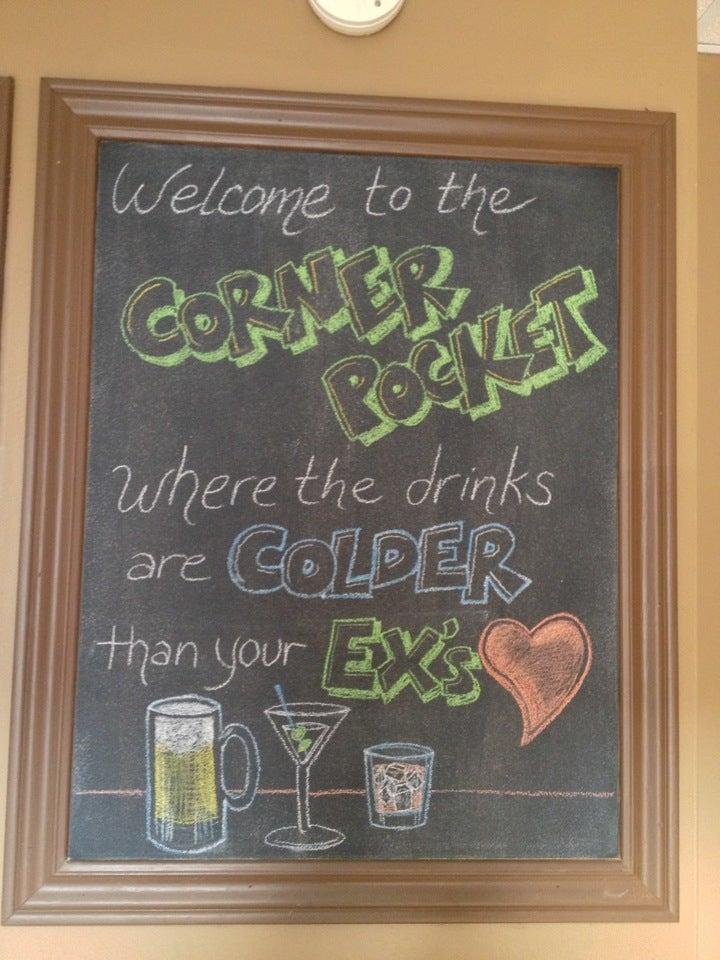 Welcome to the
CORNER
POCKET
where the drinks
are COLDER
than your EX's